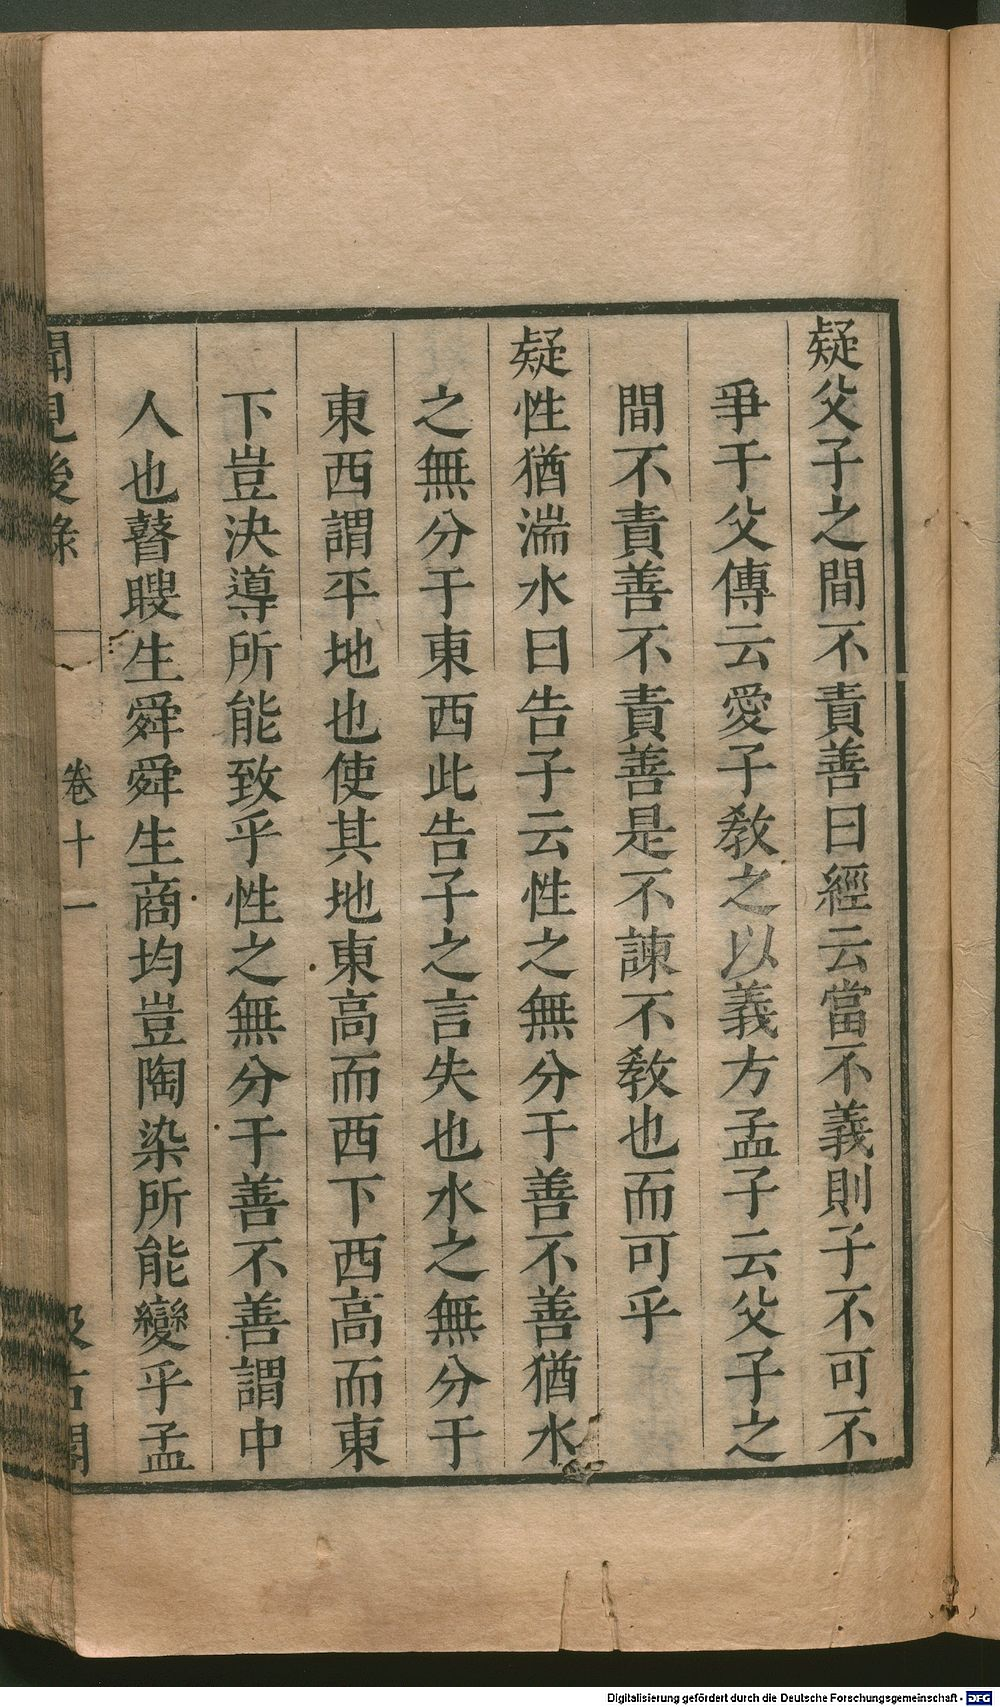 疑父子之間不責善曰經云當不義則子不可不
爭于父傳云愛子敎之以義方孟子云父子之
間不責善不責善是不諫不敎也而可乎
疑性猶湍水曰告子云性之無分于善不善猶水
之無分于東西此告子之言失也水之無分于
東西謂平地也使其地東高而西下西高而東
下豈決導所能致乎性之無分于善不善謂中
人也瞽瞍生舜舜生商均豈陶染所能變乎孟
聞見後錄
卷十一
汲古閣
Digitalisierung gefördert durch die Deutsche Forschungsgemeinschaft - DFG